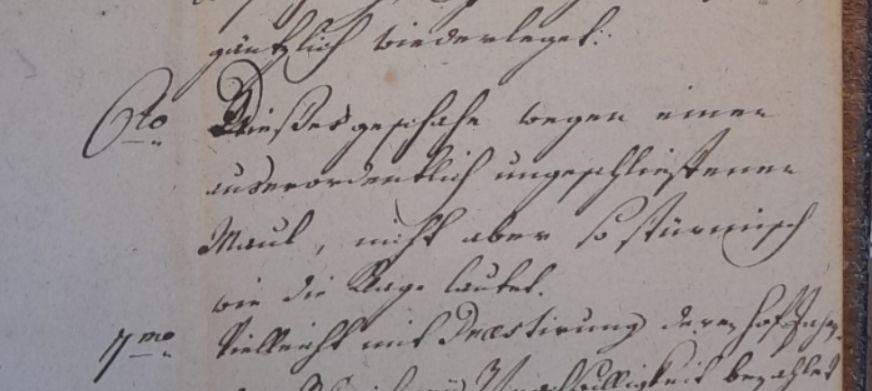 gäntzlich wiederleget:
6to Dießes geschahe wegen einen
auserordentlich ungeschliffenen
Maul, nicht aber so stürmisch
wie die Klage lautet.
7mo Vielleicht mit Præstirung deren
bezahlet